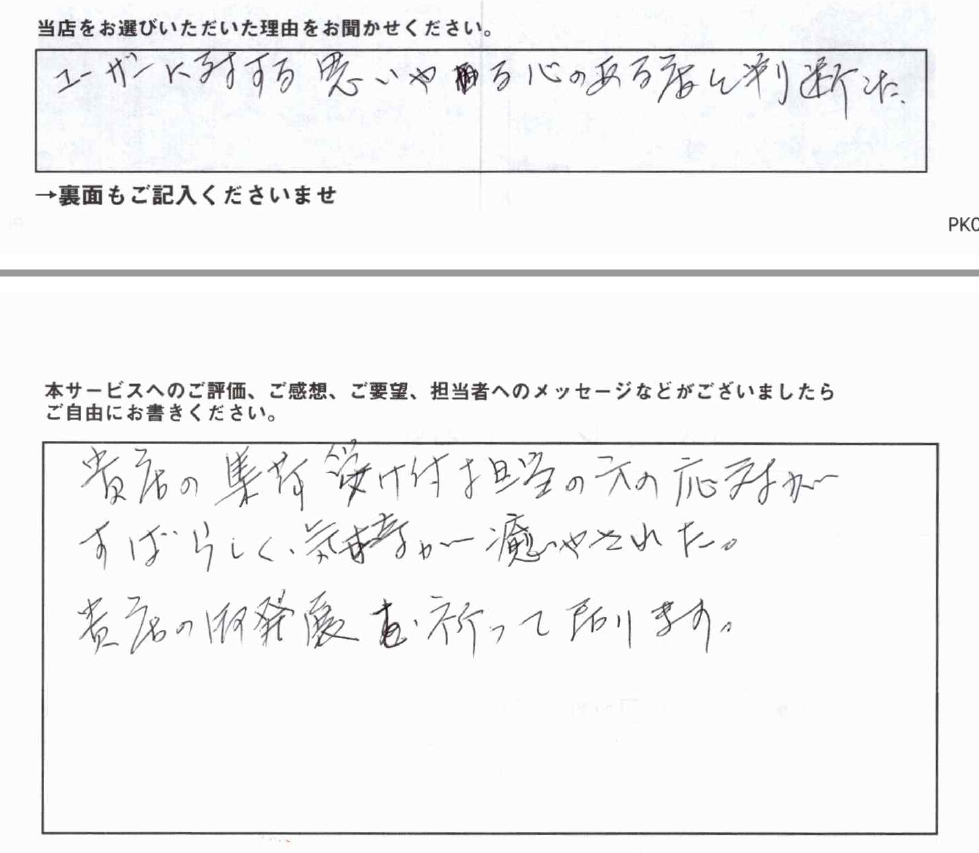 当店をお選びいただいた理由をお聞かせください。
ユーザーに対する思いやる心のある店と判断した。
→裏面もご記入くださいませ
PK0
本サービスへのご評価、ご感想、ご要望、担当者へのメッセージなどがございましたら
ご自由にお書きください。
貴店の集荷受け付け担当の方の応対が
すばらしく、気持が癒やされた。
貴店の御発展を祈って居ります。